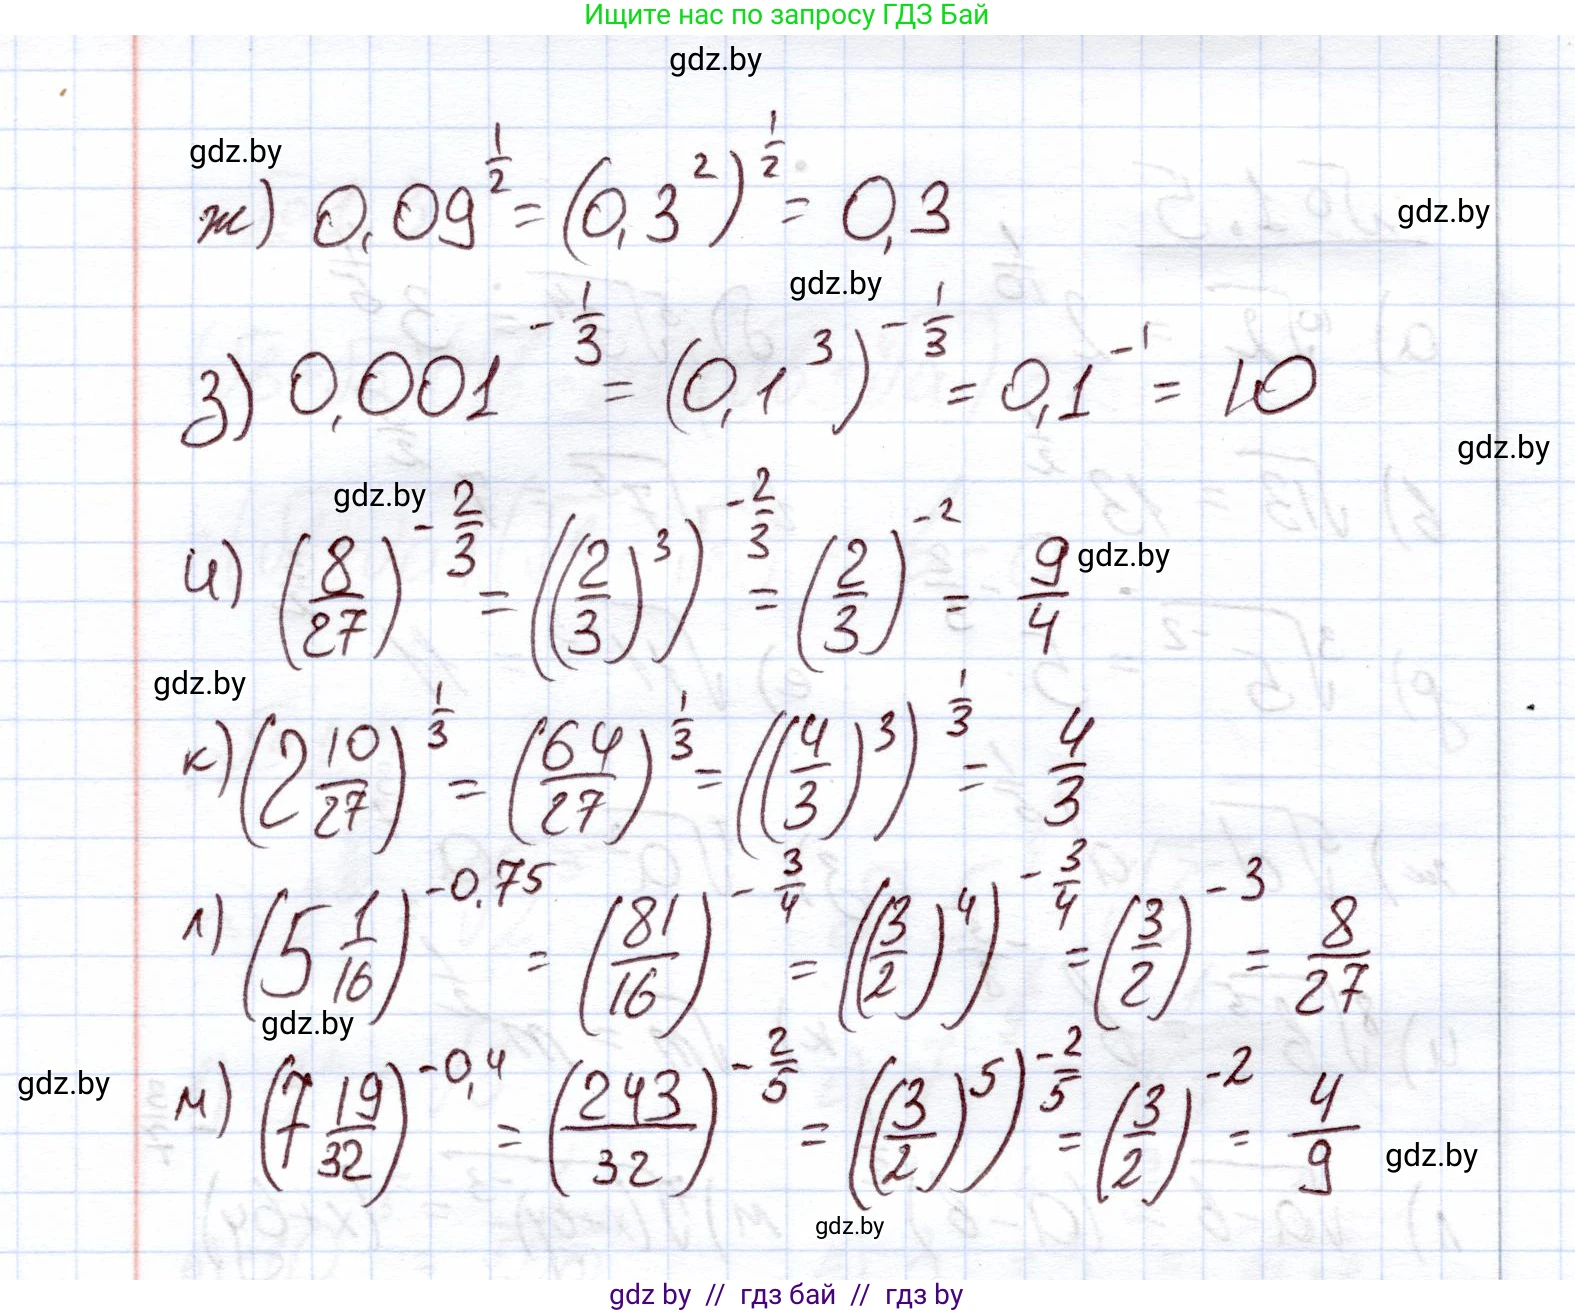 Ищите нас по запросу ГДЗ Бай
gdz.by
gdz.by
ж) 0,09^{1/2} = (0,3^2)^{1/2} = 0,3
gdz.by
gdz.by
з) 0,001^{-1/3} = (0,1^3)^{-1/3} = 0,1^{-1} = 10
gdz.by
gdz.by
и) (8/27)^{-2/3} = ((2/3)^3)^{-2/3} = (2/3)^{-2} = 9/4
gdz.by
gdz.by
к) (2 10/27)^{1/3} = (64/27)^{1/3} = ((4/3)^3)^{1/3} = 4/3
л) (5 1/16)^{-0,75} = (81/16)^{-3/4} = ((3/2)^4)^{-3/4} = (3/2)^{-3} = 8/27
gdz.by
gdz.by
м) (7 19/32)^{-0,4} = (243/32)^{-2/5} = ((3/2)^5)^{-2/5} = (3/2)^{-2} = 4/9
gdz.by
gdz.by
gdz by // гдз бай // гдз by